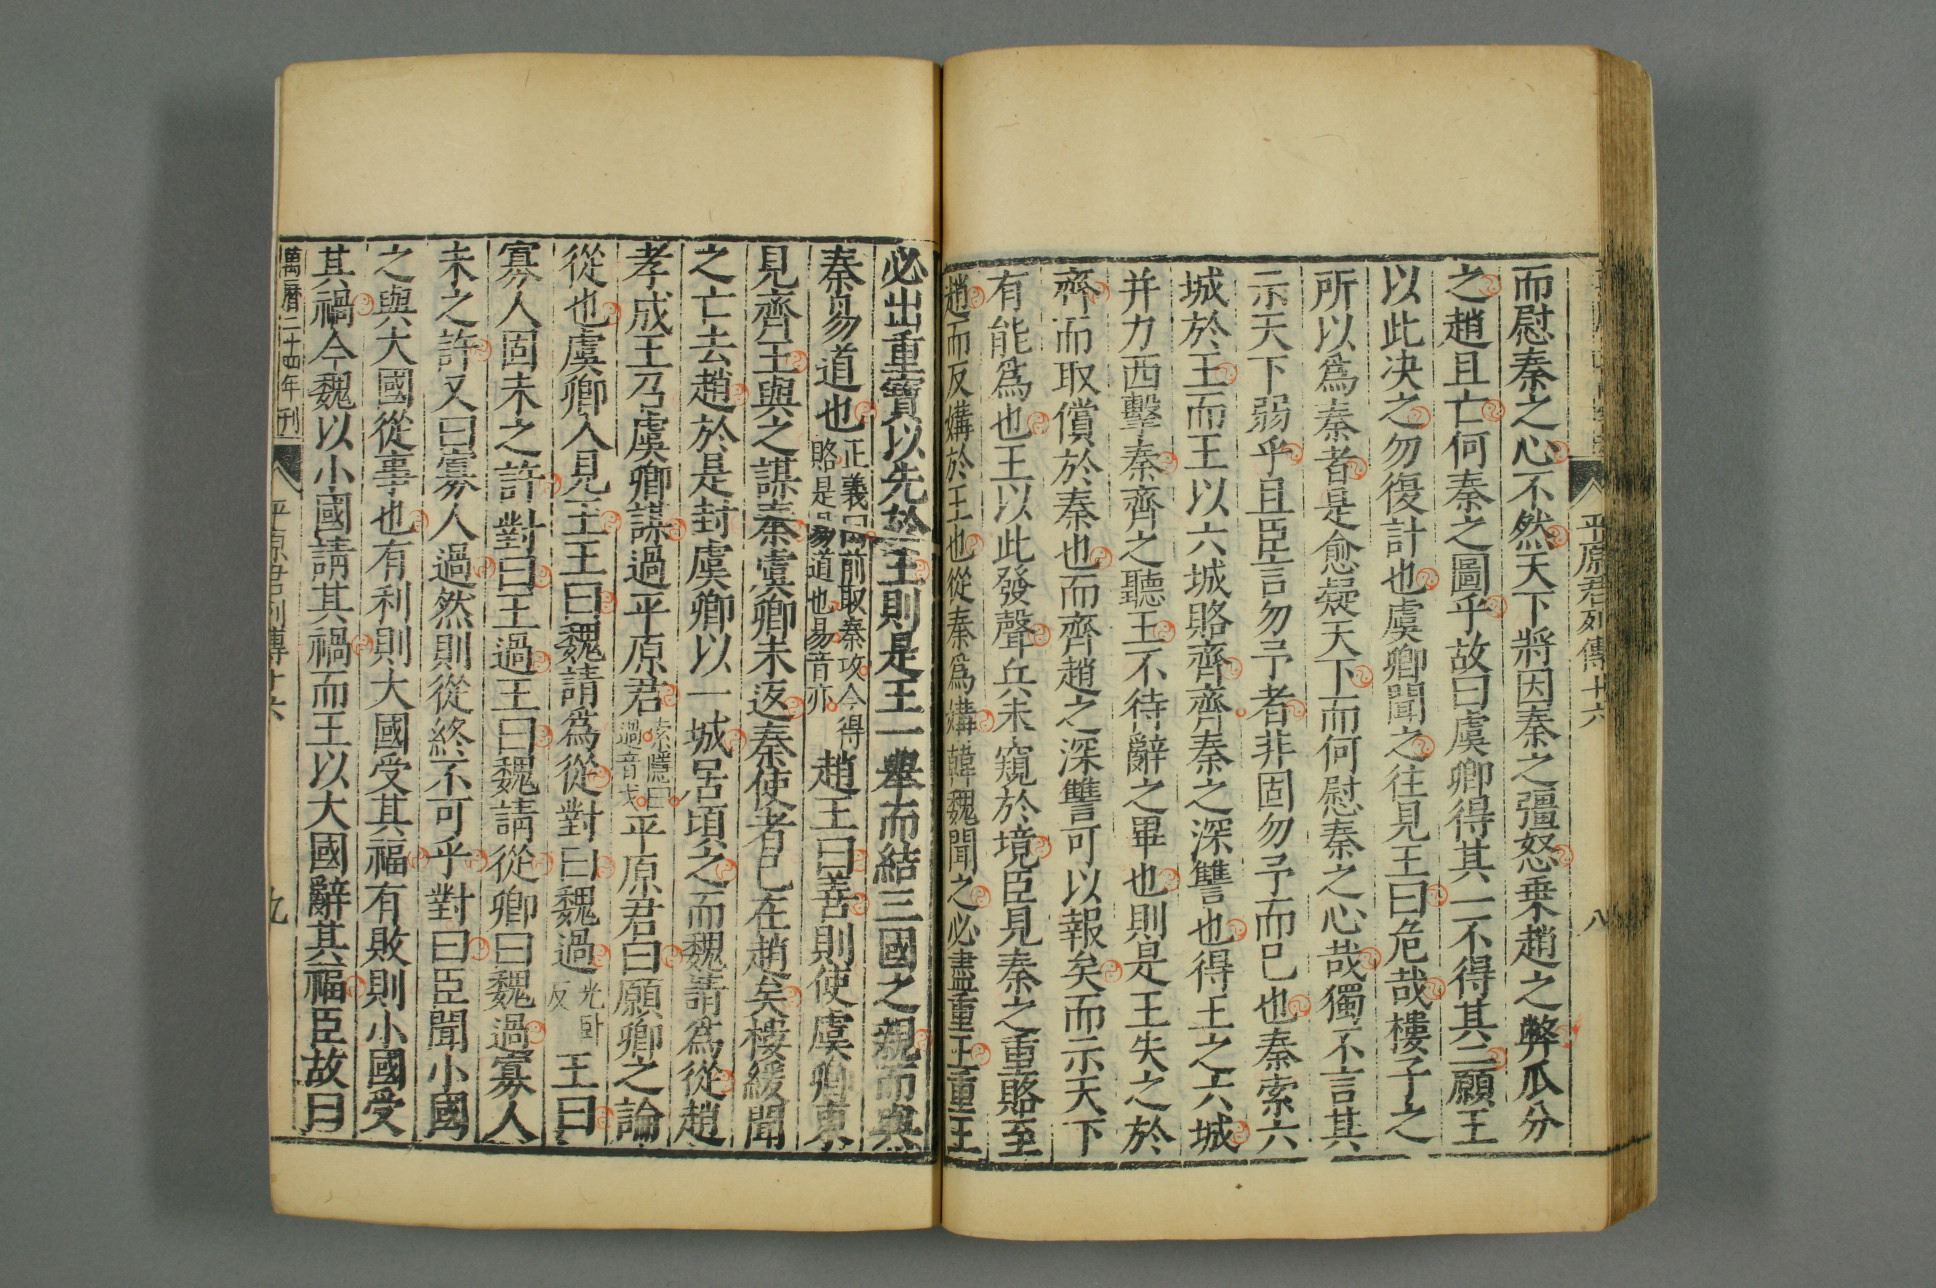 平原君列傳十六
八
而慰秦之心不然天下將因秦之彊怒乗趙之弊瓜分
之趙且亡何秦之圖乎故曰虞卿得其一不得其二願王
以此决之勿復計也虞卿聞之往見王曰危哉樓子之
所以爲秦者是愈疑天下而何慰秦之心哉獨不言其
示天下弱乎且臣言勿予者非固勿予而已也秦索六
城於王而王以六城賂齊齊秦之深讐也得王之六城
并力西擊秦齊之聽王不待辭之畢也則是王失之於
齊而取償於秦也而齊趙之深讐可以報矣而示天下
有能爲也王以此發聲兵未窺於境臣見秦之重賂至
趙而反媾於王也從秦爲媾韓魏聞之必盡重王重王
必出重寶以先於王則是王一舉而結三國之親而與
秦易道也
正義曰前取秦攻今得
賂是易道也易音亦
趙王曰善則使虞卿東
見齊王與之謀秦虞卿未返秦使者已在趙矣樓緩聞
之亡去趙於是封虞卿以一城居頃之而魏請爲從趙
孝成王乃虞卿謀過平原君
索隱曰
過音戈
平原君曰願卿之論
從也虞卿入見王王曰魏請爲從對曰魏過
光卧
反
王曰
寡人固未之許對曰王過王曰魏請從卿曰魏過寡人
未之許又曰寡人過然則從終不可乎對曰臣聞小國
之與大國從事也有利則大國受其福有敗則小國受
其禍今魏以小國請其禍而王以大國辭其福臣故曰
萬曆二十四年刊
平原君列傳十六
九